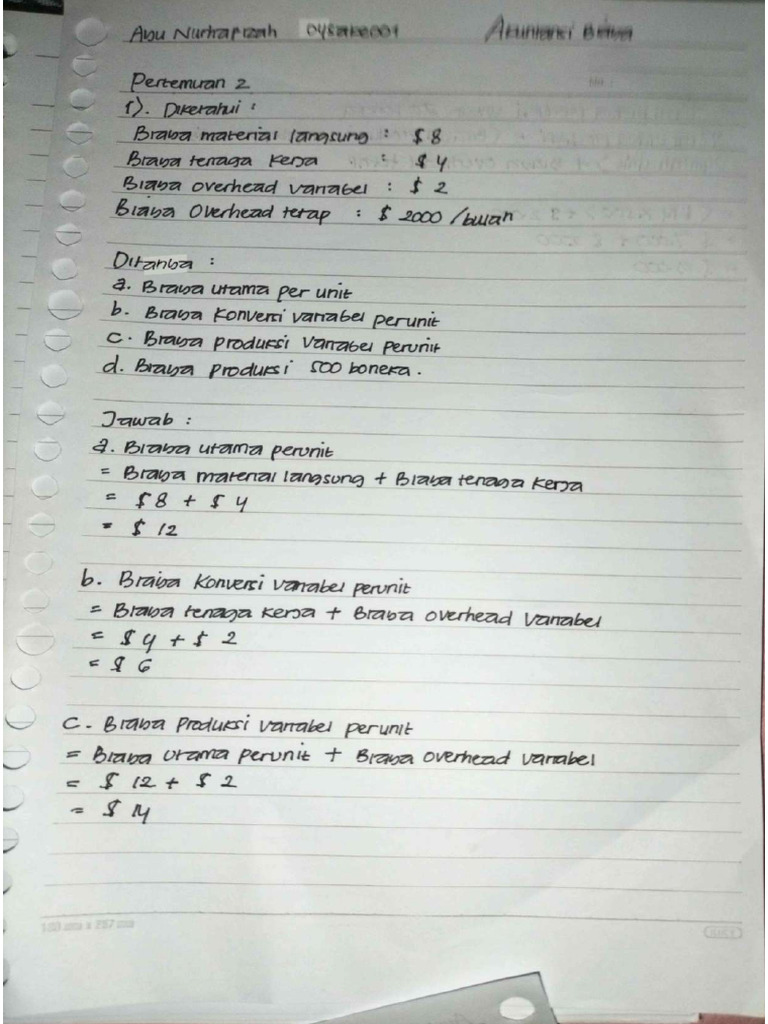 Ayu Nurhapizah 04sake001 Akuntansi Biaya
Pertemuan 2
1). Diketahui :
Biaya material langsung : $ 8
Biaya tenaga kerja : $ 4
Biaya overhead variabel : $ 2
Biaya Overhead tetap : $ 2000 /bulan
Ditanya :
a. Biaya utama per unit
b. Biaya Konversi variabel perunit
c. Biaya produksi Variabel perunit
d. Biaya produksi 500 boneka.
Jawab :
a. Biaya utama perunit
= Biaya material langsung + Biaya tenaga kerja
= $ 8 + $ 4
= $ 12
b. Biaya Konversi variabel perunit
= Biaya tenaga kerja + Biaya overhead Variabel
= $ 4 + $ 2
= $ 6
c. Biaya Produksi variabel perunit
= Biaya utama perunit + Biaya overhead variabel
= $ 12 + $ 2
= $ 14